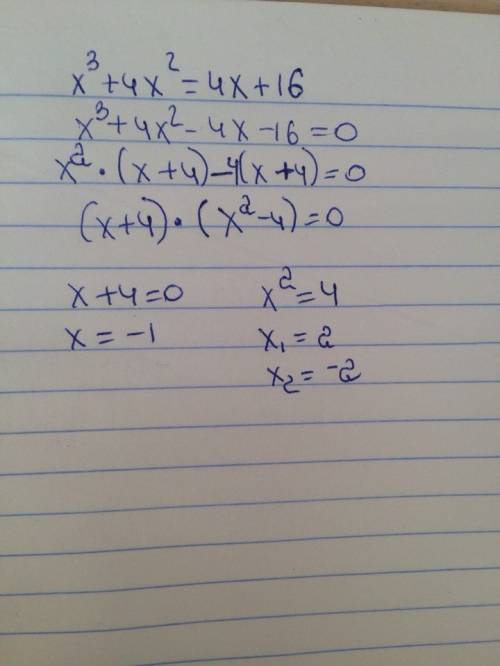 x³+4x²=4x+16
x³+4x²-4x-16=0
x²·(x+4)-4(x+4)=0
(x+4)·(x²-4)=0
x+4=0 x²=4
x=-1 x₁=2
x₂=-2